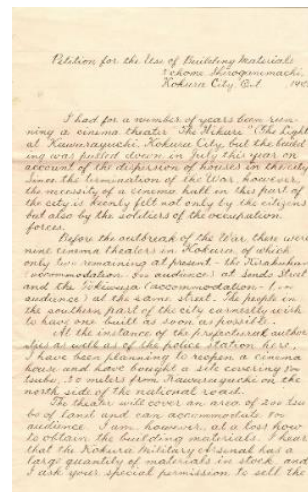 Petition for the Use of Building Materials
Kokura City, Oct
I had for a number of years been run-
ning a cinema theater "The Hikari" (The Light)
at Kawaraguchi, Kokura City, but the build-
ing was pulled down in July this year on
account of the dispersion of houses in the city.
Since the termination of the War, however,
the necessity of a cinema hall in this part of
the city is keenly felt not only by the citizens
but also by the soldiers of the occupation
forces.
Before the outbreak of the War there were
nine cinema theaters in Kokura, of which
only two remaining at present - the
(accommodation audience) at Street
and the (accommodation
audience) at the same street. The people in
the southern part of the city earnestly wish
to have one built as soon as possible.
At the instance of the author-
ities as well as of the police station here,
I have been planning to reopen a cinema
house and have bought a site covering
tsubo, meters from Kawaraguchi on the
north side of the national road.
The theater will cover an area of 200 tsu-
bo of land and can accommodate
audience. I am, however, at a loss how
to obtain the building materials. I hear
that the Kokura Military Arsenal has a
large quantity of materials in stock, and
I ask your special permission to sell the